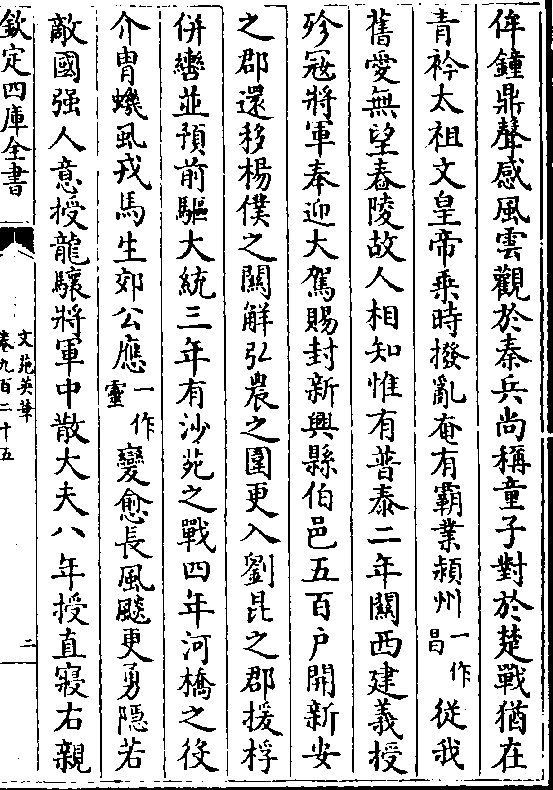 侔鐘鼎聲感風雲觀於秦兵尚稱童子對於楚戰猶在
青衿太祖文皇帝乗時撥亂奄有霸業潁州一作昌從我
舊愛無望舂陵故人相知惟有普泰二年關西建義授
殄冦將軍奉迎大駕賜封新興縣伯邑五百户開新安
之郡還移楊僕之關解弘農之圍更入劉昆之郡援桴
併轡並預前驅大統三年有沙苑之戰四年河橋之役
介胄蟣虱戎馬生郊公應一作靈變愈長風飈更勇隱若
敵國强人意授龍驤將軍中散大夫八年授直寢右親
欽定四庫全書
文苑英華
卷九百二十五
二